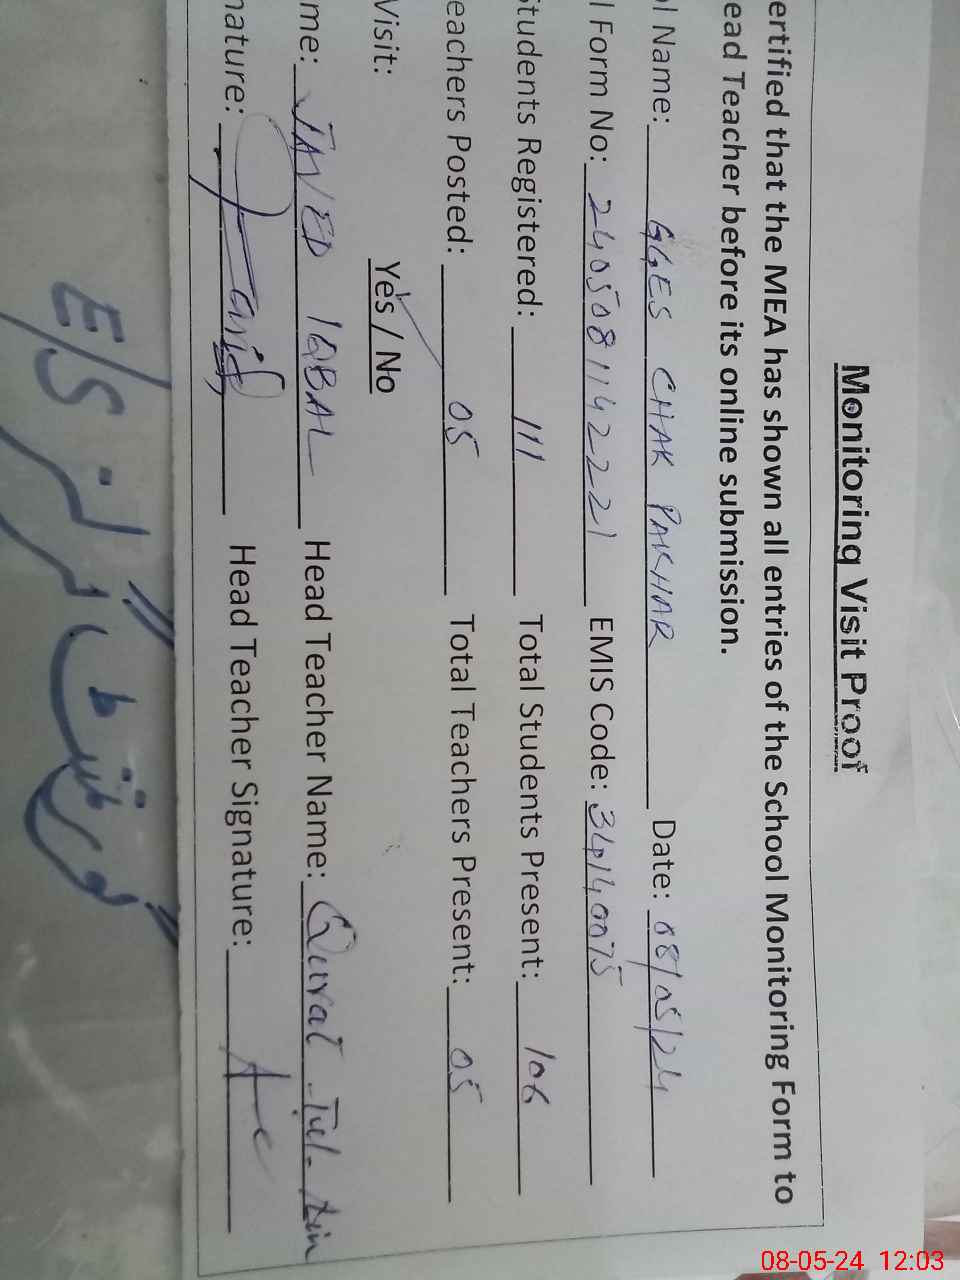 Monitoring Visit Proof
ertified that the MEA has shown all entries of the School Monitoring Form to
ead Teacher before its online submission.
ol Name: GGES CHAK PAKHAR Date: 08/05/24
l Form No: 240508114221 EMIS Code: 34140075
Students Registered: 111 Total Students Present: 106
eachers Posted: 05 Total Teachers Present: 05
Visit: Yes / No
me: JAVED IQBAL Head Teacher Name: Qurat-Tul-Ain
nature: Javid Head Teacher Signature:
E/S
08-05-24 12:03